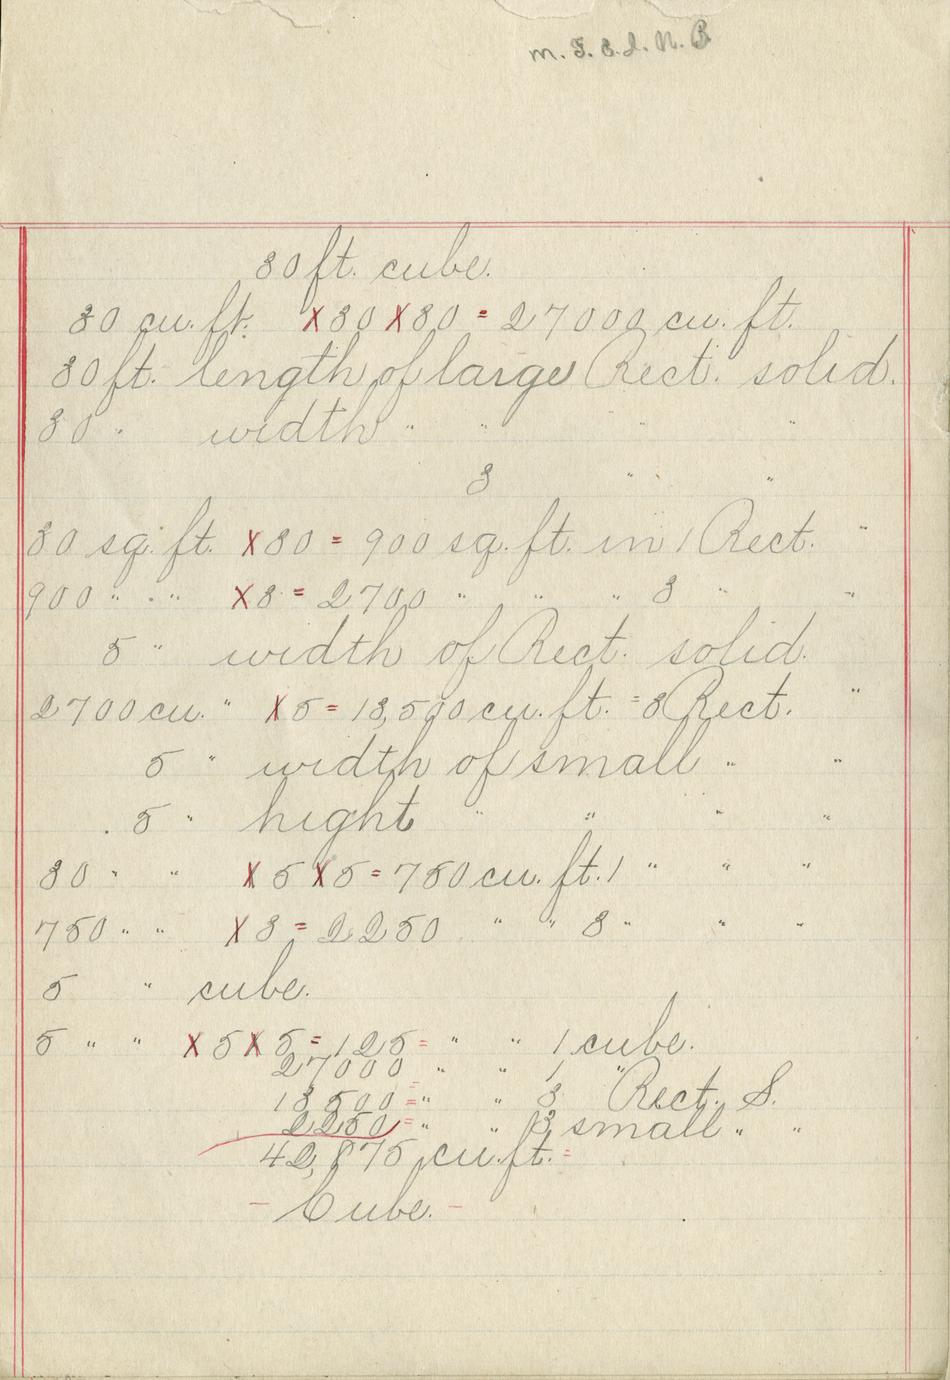 m. F. E. I. N. B
30 ft. cube.
30 cu. ft. X 30 X 30 = 27000 cu. ft.
30 ft. length of large Rect. solid.
30 " width " " " "
3 " "
30 sq. ft. X 30 = 900 sq. ft. in 1 Rect. "
900 " " " X 3 = 2700 " " " 3 " "
5 " width of Rect. solid.
2700 cu. " X 5 = 13,500 cu. ft. = 3 Rect. "
5 " width of small " "
5 " hight " " " "
30 " " X 5 X 5 = 750 cu. ft. 1 " " "
750 " " X 3 = 2250 " " 3 " " "
5 " cube.
5 " " X 5 X 5 = 125 = " " 1 cube.
27000 " " 1 "
13500 = " " 3 Rect. S.
2250 = " " 3 small " "
42,875 cu. ft. =
- Cube. -